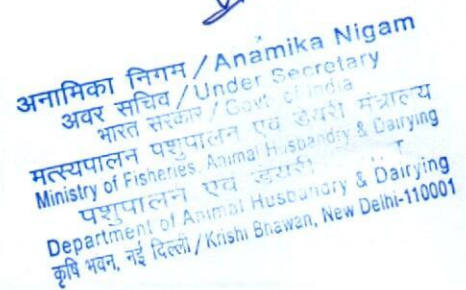 अनामिका निगम / Anamika Nigam
अवर सचिव / Under Secretary
भारत सरकार / Govt. of India
मत्स्यपालन पशुपालन एवं डेयरी मंत्रालय
Ministry of Fisheries, Animal Husbandry & Dairying
पशुपालन एवं डेयरी
Department of Animal Husbandry & Dairying
कृषि भवन, नई दिल्ली / Krishi Bhawan, New Delhi-110001